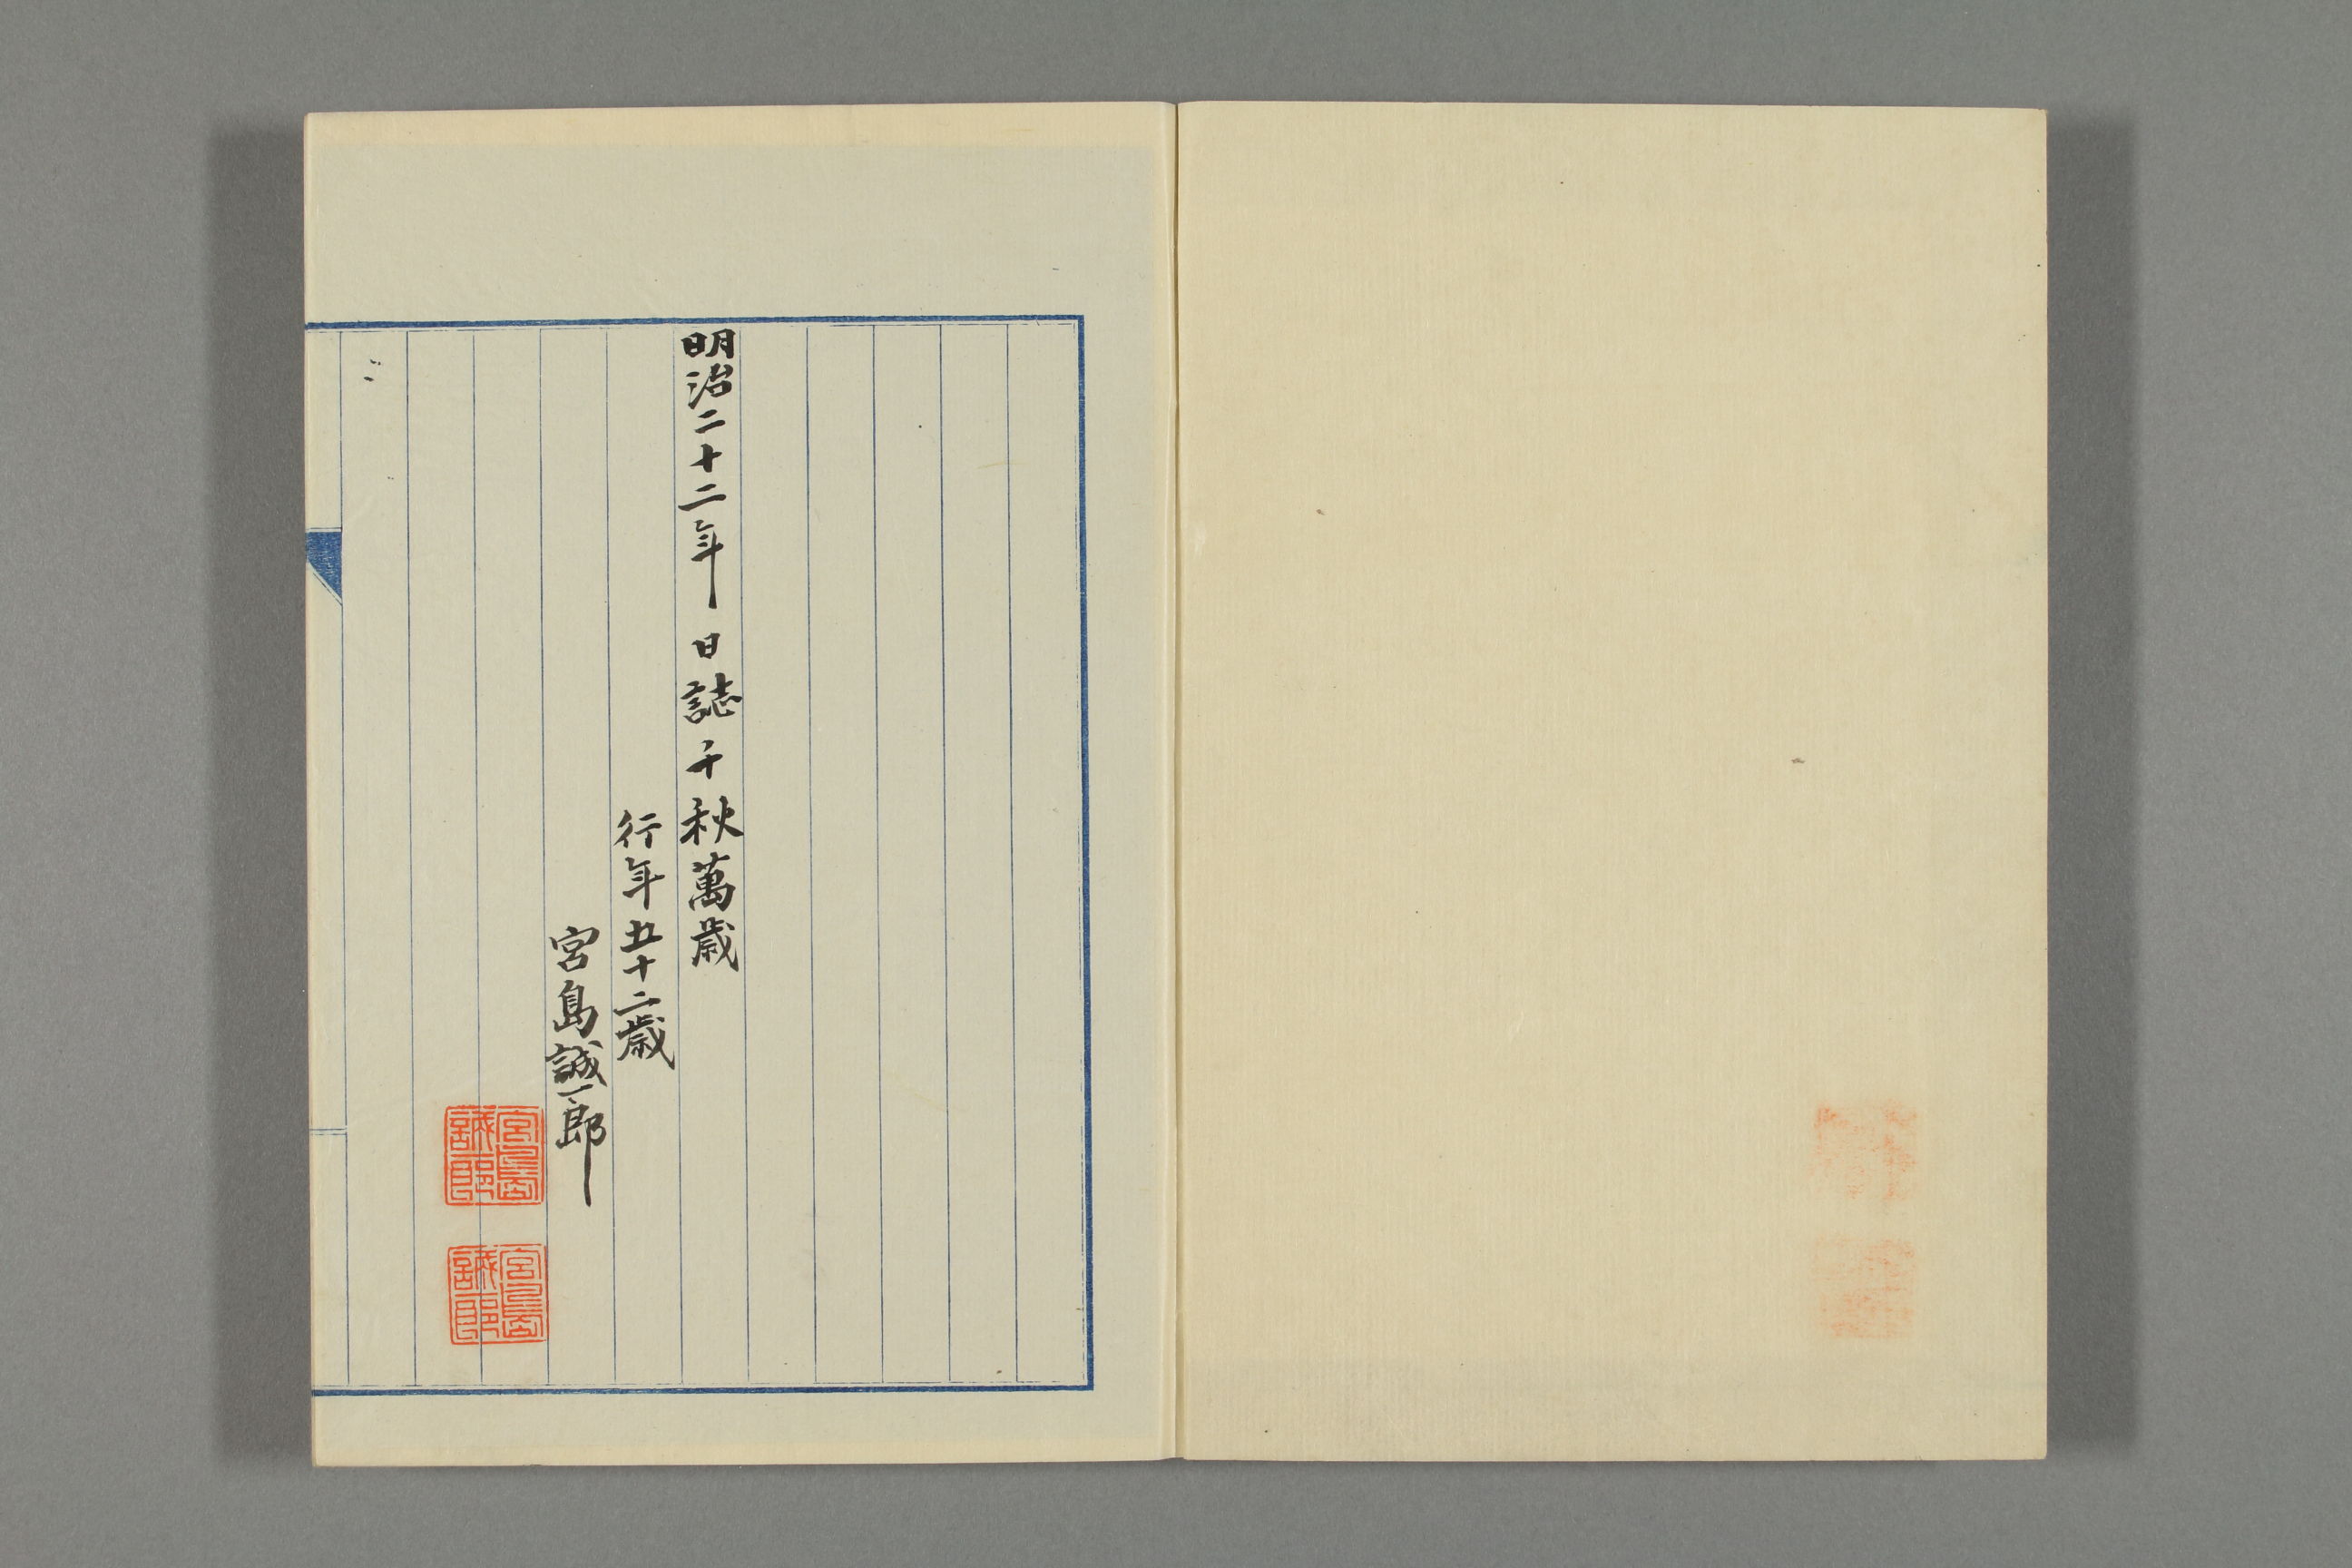 明治二十二年日誌千秋萬歳
行年五十二歳
宮島誠一郎
宮島誠一郎
宮島誠一郎